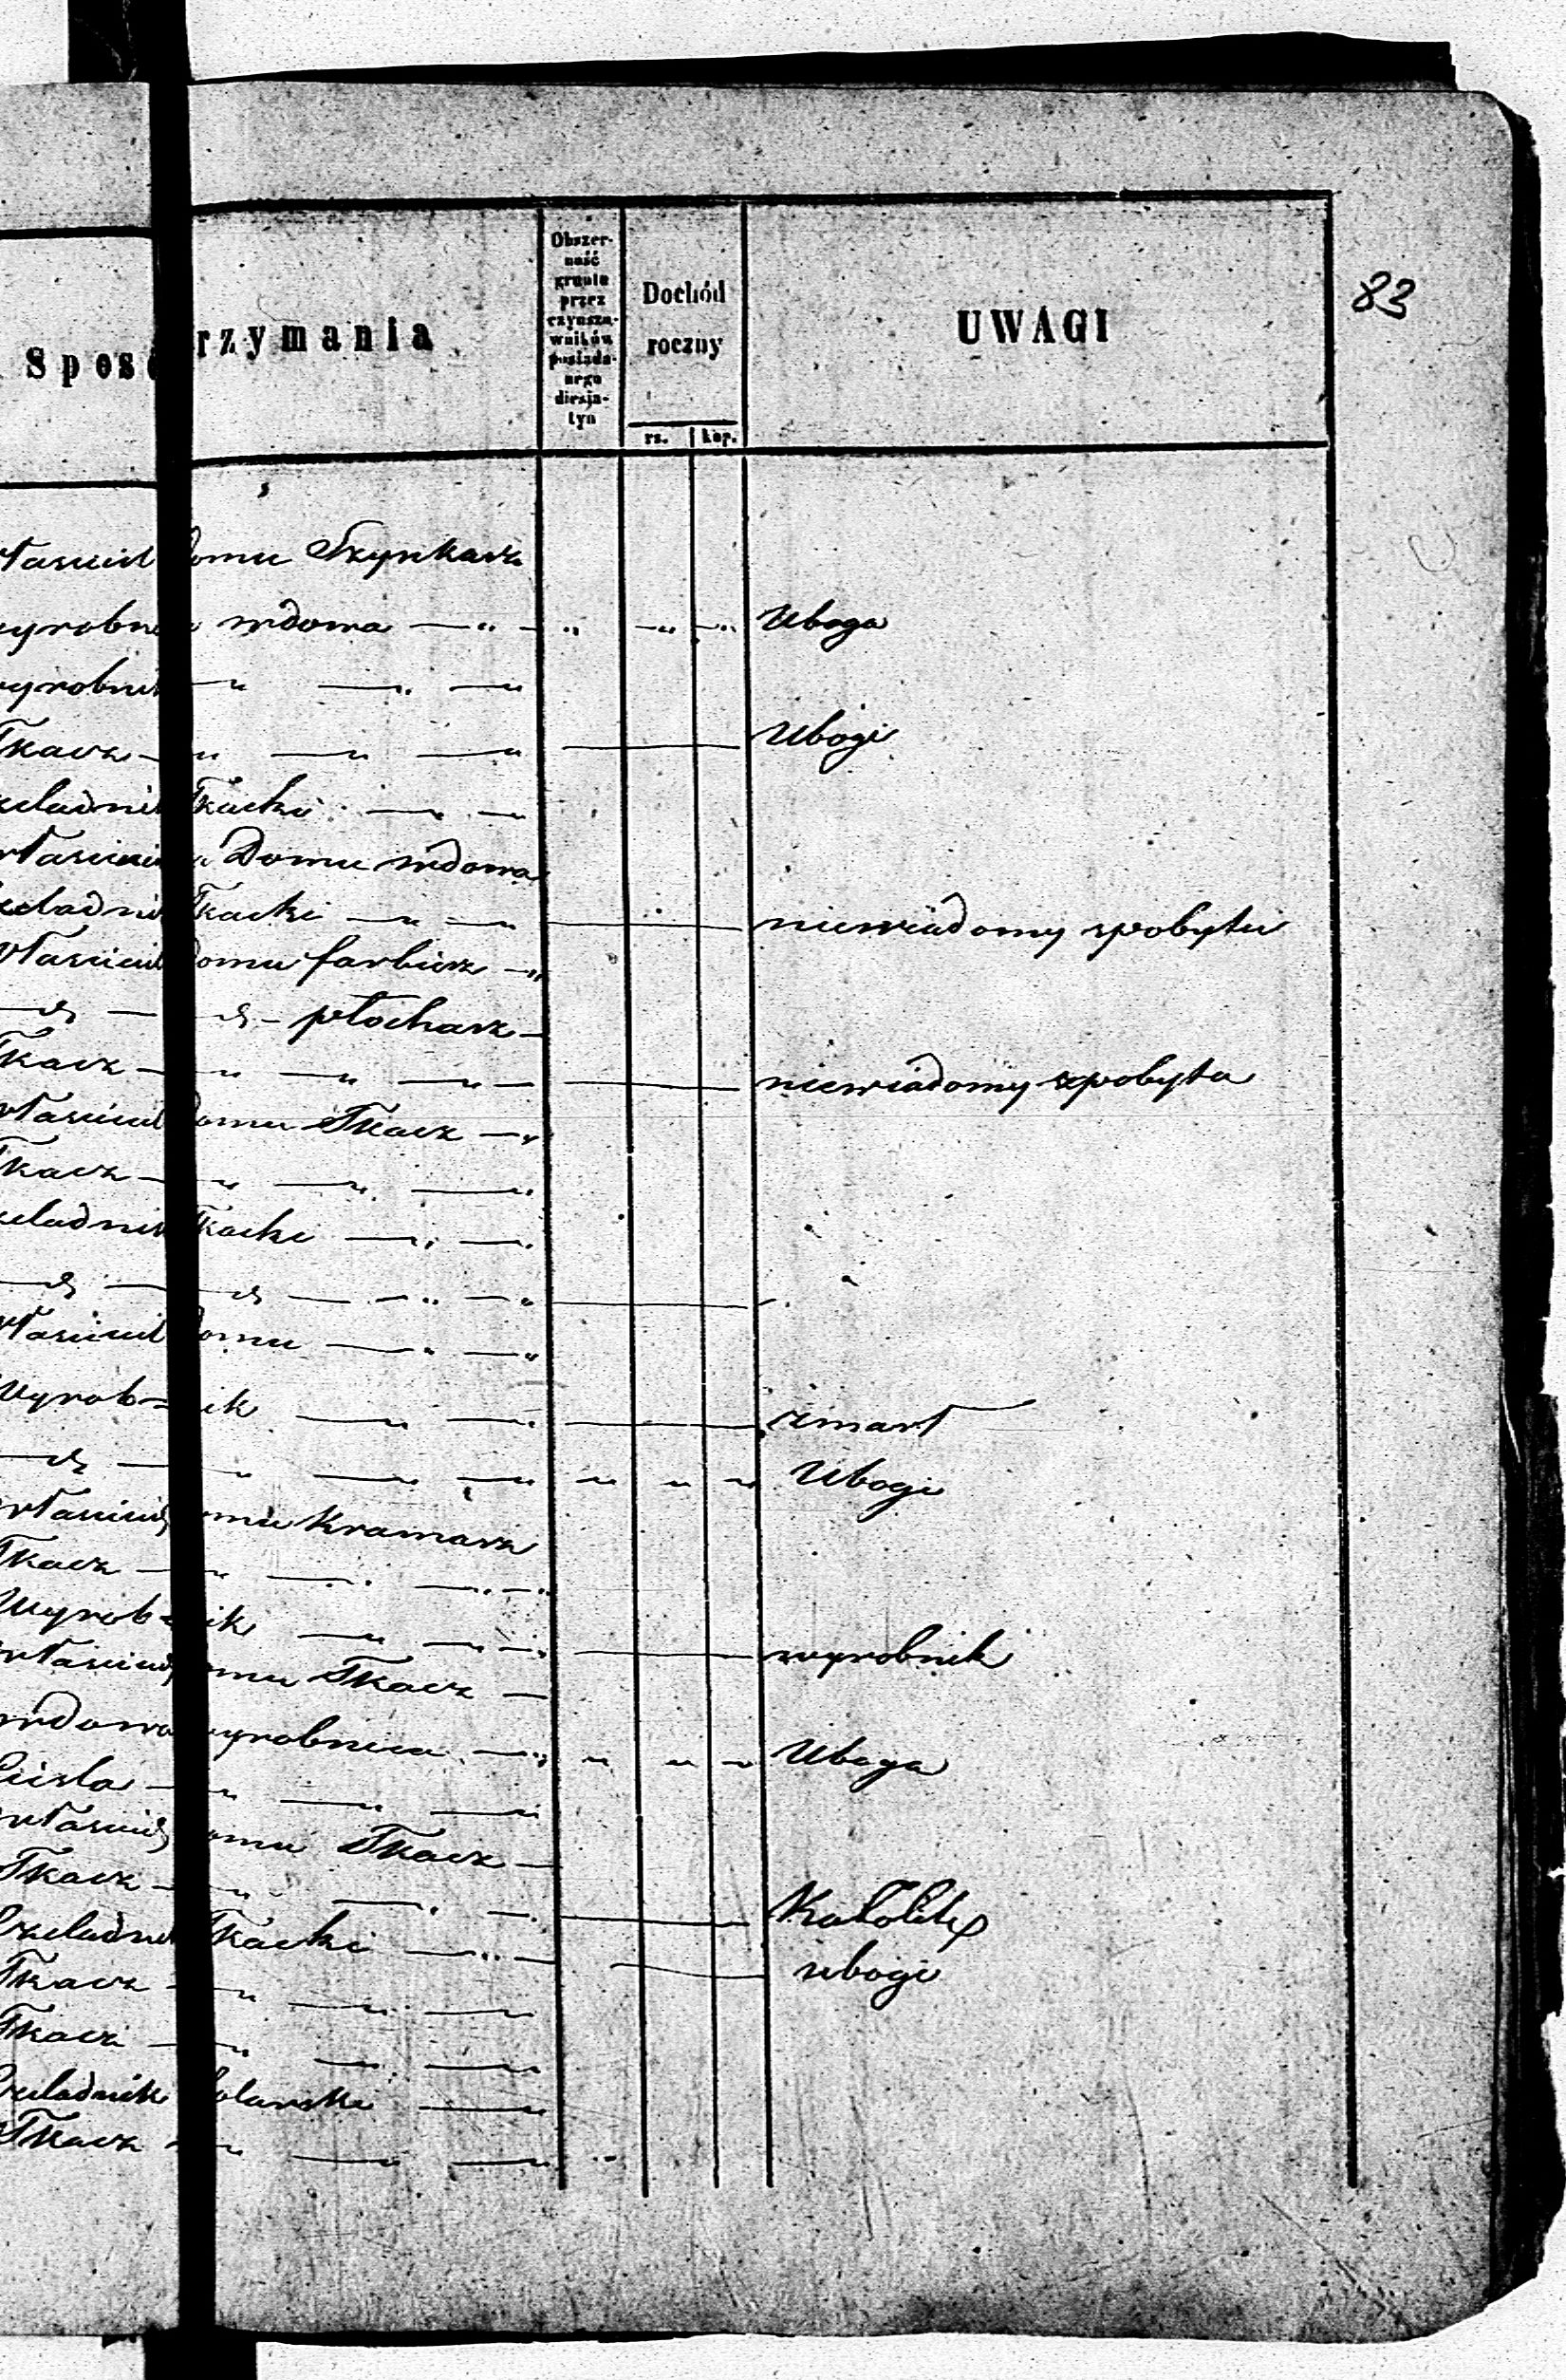 83
Sposó rzymania
Obszerność gruntu przez czynszowników posiadanego diesjatyn
Dochód roczny
rs. kop.
UWAGI
łasciciel domu Szynkarz
yrobnica wdowa — " — " — " — " Uboga
yrobnik — " — " — "
Tkacz — " — " — " Ubogi
zeladnik Tkacki — " — "
właścicielka Domu wdowa
zeladnik Tkacki — " — " niewiadomy spobytu
właściciel domu farbierz — "
— d — d — płocharz —
Tkacz — " — " — " — niewiadomy zpobytu
właściciel domu Tkacz — "
Tkacz — " — " — "
zeladnik Tkacki — " — "
— d — d — " — "
właściciel domu — " — "
Wyrobnik — " — " zmarł
— d — " — " — " " " " Ubogi
właściciel domu Kramarz
Tkacz — " — " — " — "
Wyrobnik — " — " — " wyrobnik
właściciel domu Tkacz —
wdowa wyrobnica — " " " " Uboga
Ciesla — " — " — "
właściciel domu Tkacz —
Tkacz — " — " — " Katolik
Czeladnik Tkacki — " — ubogi
Tkacz — " — " — "
Tkacz — " — " — "
Czeladnik olarski — "
Tkacz — " — " — "